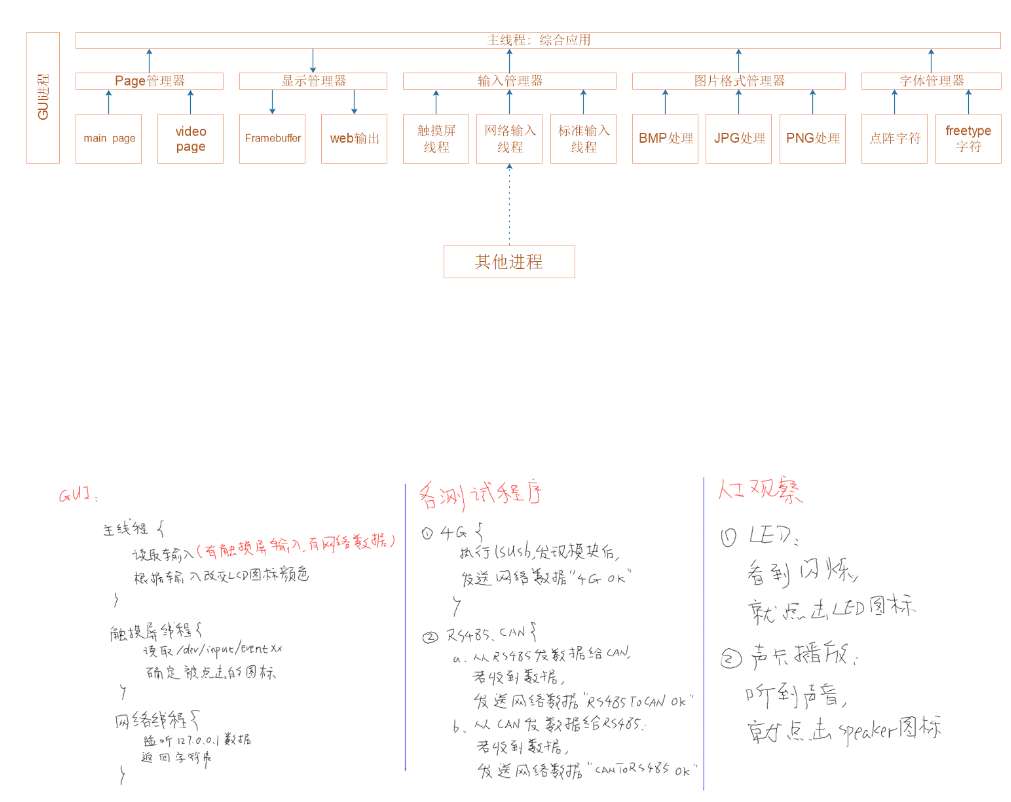 GUI进程
主线程：综合应用
Page管理器
显示管理器
输入管理器
图片格式管理器
字体管理器
main page
video page
Framebuffer
web输出
触摸屏线程
网络输入线程
标准输入线程
BMP处理
JPG处理
PNG处理
点阵字符
freetype字符
其他进程
GUI:
主线程{
读取输入(有触摸屏输入,有网络数据)
根据输入改变LCD图标颜色
}
触摸屏线程{
读取/dev/input/eventxx
确定被点击的图标
}
网络线程{
监听127.0.0.1数据
返回字符串
}
各测试程序
① 4G {
执行lsusb,发现模块后,
发送网络数据"4G OK"
}
② RS485、CAN{
a. 从RS485发数据给CAN,
若收到数据,
发送网络数据"RS485ToCAN OK"
b. 从CAN发数据给RS485.
若收到数据,
发送网络数据"CANToRS485 OK"
人工观察
① LED:
看到闪烁,
就点击LED图标
② 声卡播放:
听到声音,
就点击speaker图标